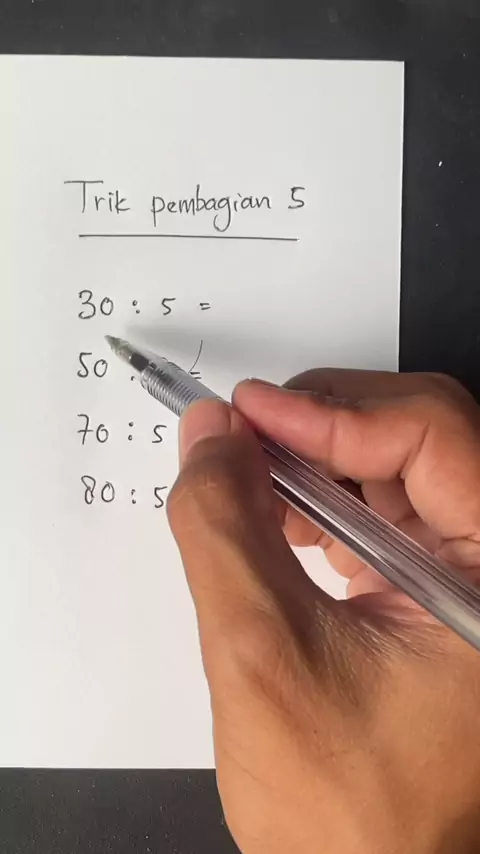 Trik pembagian 5
30 : 5 =
50 =
70 : 5
80 : 5